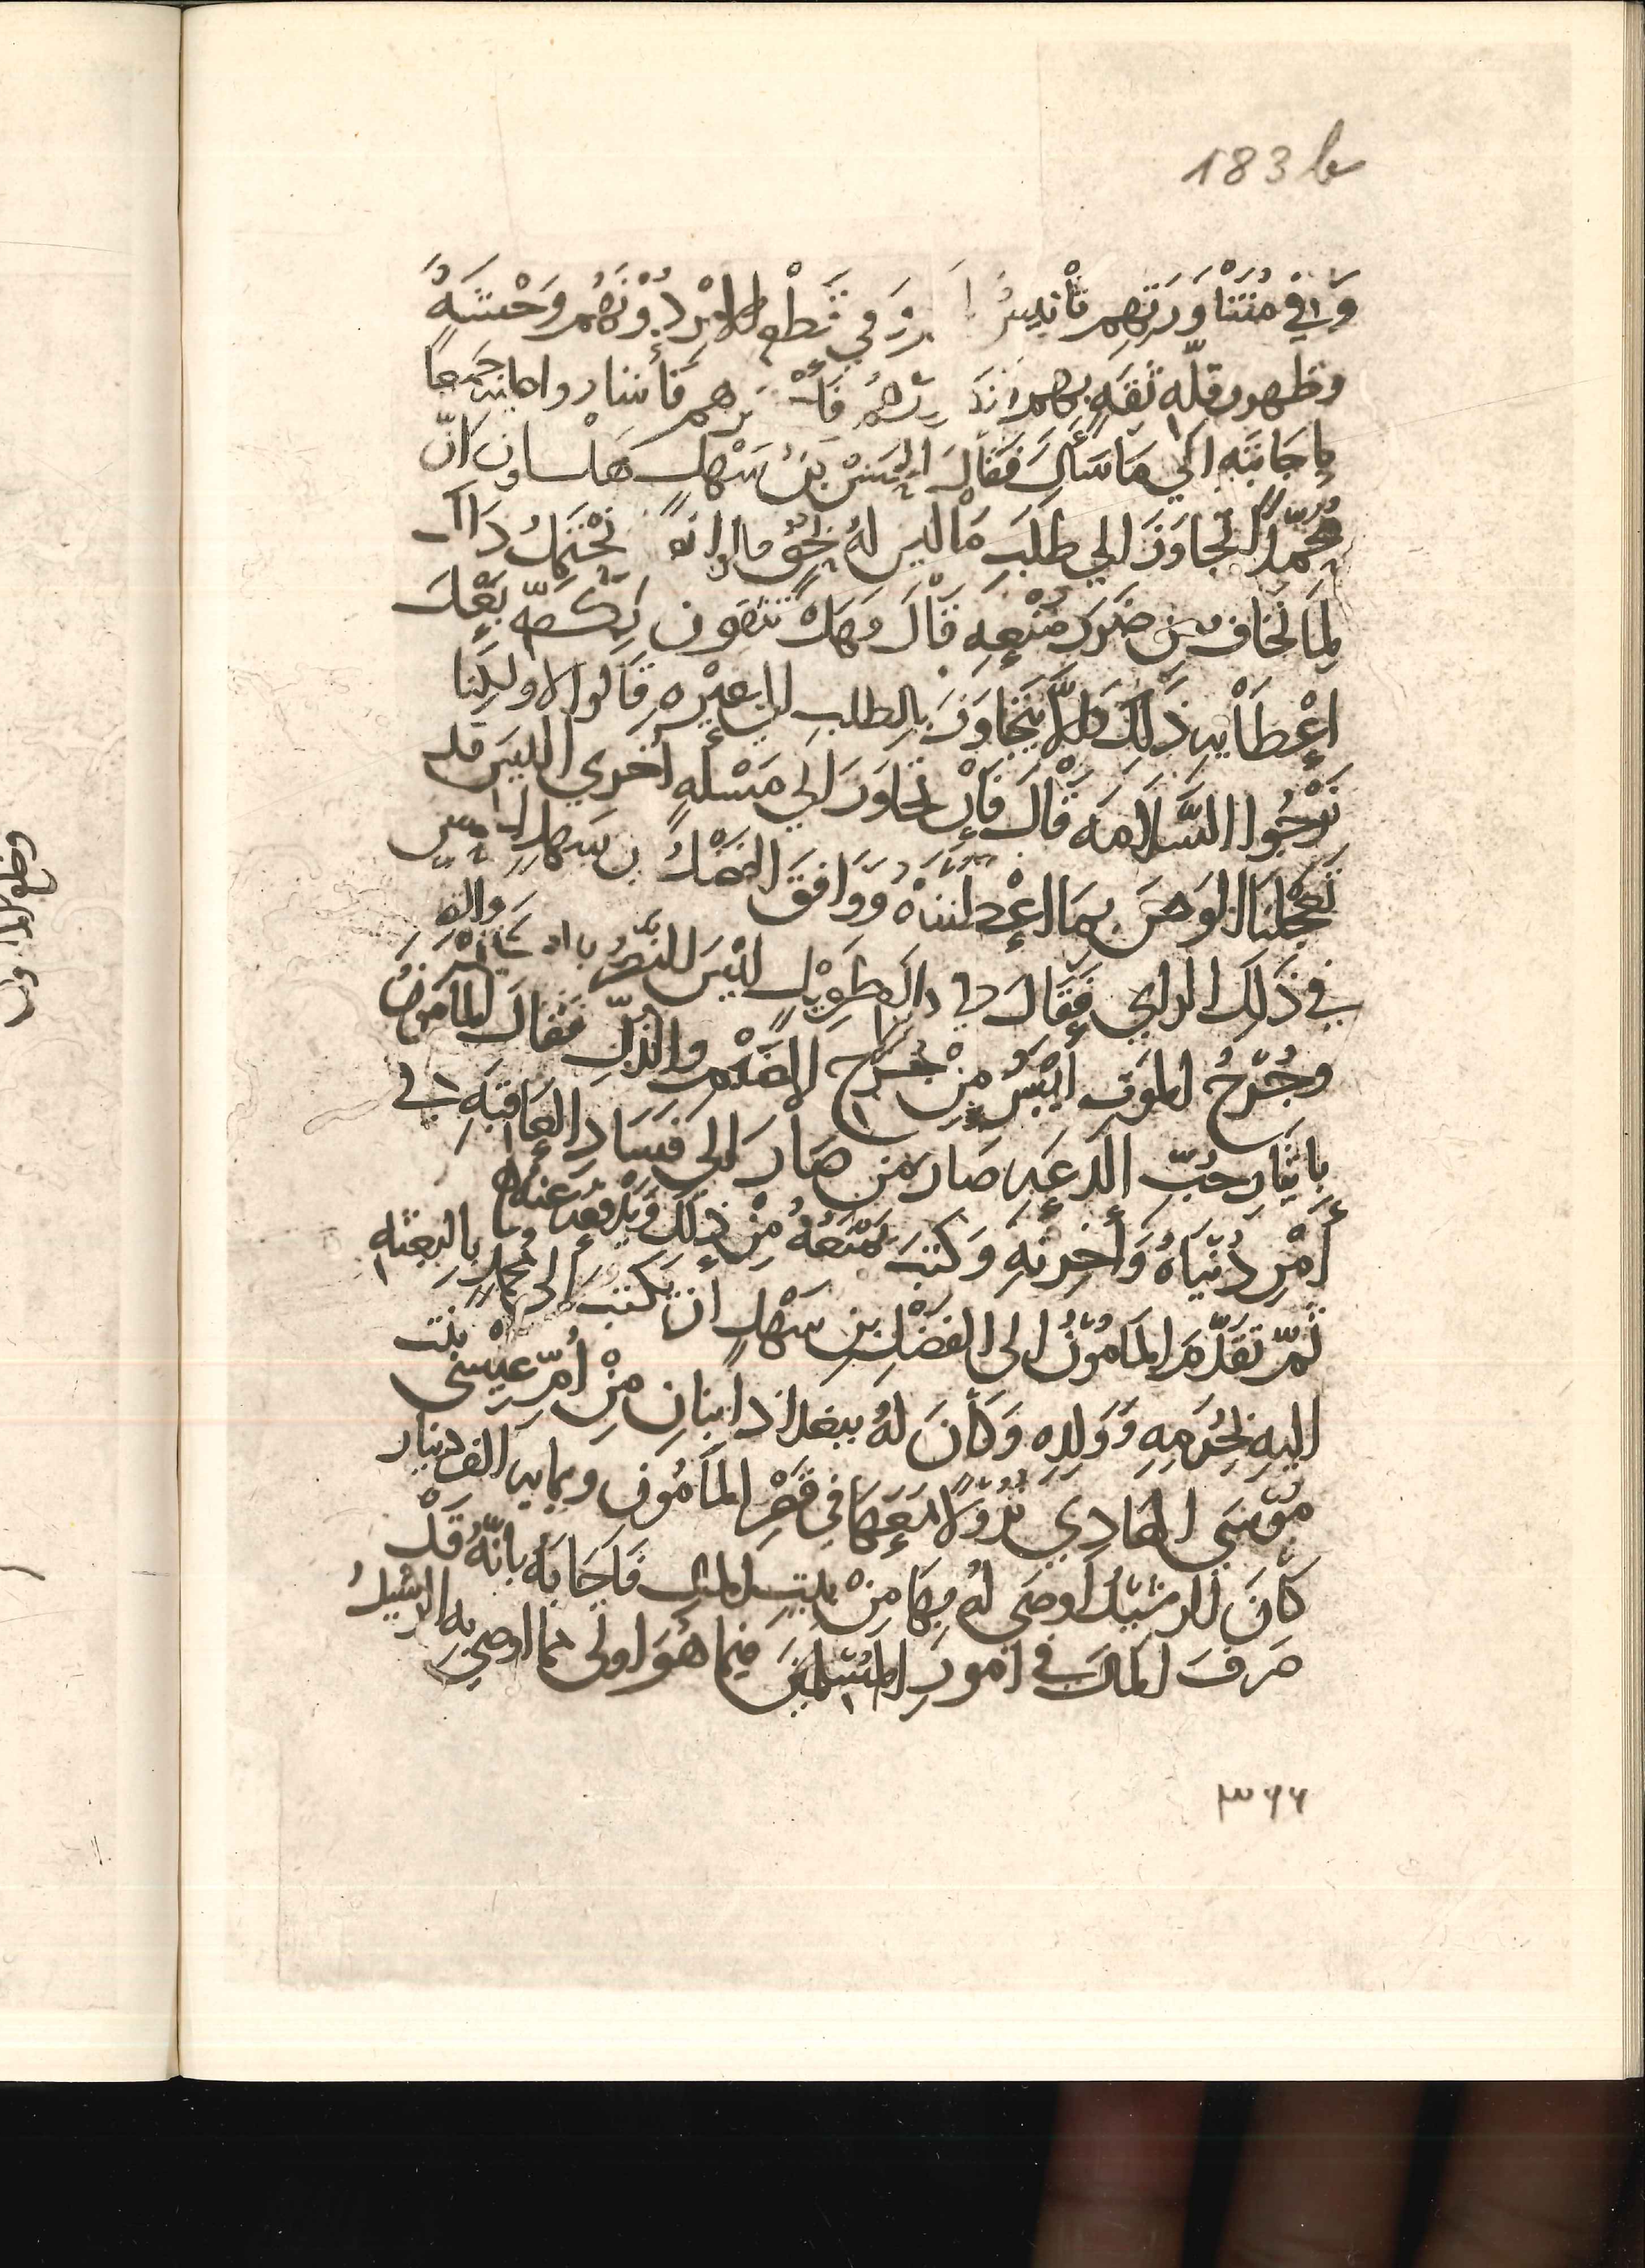 183 b
وَفي مُشَاوَرَتِهِم تَأْنِيسًا وَفي قَطْعِ الامْرِ دُوْنَهُم وَحْشَةً
وظهور قلّه ثقَهٍ بِهم فَأشاروا جَميعًا
بِاجَابَتِهِ اِلَي مَا سَأَلَ فَقَالَ الحَسَنُ بْنُ سَهْلٍ هَل ان
مُحمّدًا تجاوَزَ الي طلَبِ مَا ليسَ لهُ بحَقٍّ قالوا نعم نحْتَمِلُ ذاك
لِمَا نخاف مِن ضَرَرِ مَنْعِهِ قَالَ وَهَلْ تثقون بِكَفّهِ بَعْدَ
اِعْطَايهِ ذَلِكَ فَلَا يَتَجَاوَزَ بِالطلب الي غيْرِهِ قَالوا لا ولكِنا
نَرْجُوا السَّلَامَه قَالَ فَاِنْ تجاوَزَ اِلَي مَسْئَلَهٍ أُخري الليسَ قد
تعجّلنا الوَهنَ بِمَا اعْطَيناهُ وَوَافَقَ الفَضْلُ بن سَهلٍ الحسن
في ذَلِكَ الراي فَقَالَ ذاك طَوِيْل لَيْسَ النّصْرُ والله
وجُرْحُ الموَتِ أَيْسَرُ مِنْ جُرْحِ الضَّيْمِ والذُّلِّ فقالَ المأمونُ
بِايثَارِ حُبِّ الدَعَهِ صَارَ مَن صَارَ اِلَى فَسَادِ العَاقبَهِ في
أَمْرِ دُنْيَاهُ وَأخِرَتِهِ وَكَتَبَ يَمنَعُهُ مِنْ ذلِكَ وَيدْفعُه عَنها
ثُمّ تقَدّمَ المَأمُوْنُ الى الفَضْلِ بنِ سَهْلٍ ان يكتبَ الى مُحمّدٍ بالبعثه
اليهِ بِحُرَمِهِ وَوَلَدِهِ وَكَانَ لهُ ببغداد ابنانِ مِنْ أُمّ عيْسَى بنت
مُوْسَى الهَادِي نُزُوْلًا مَعَهَا فِي قَصْرِ المَأمُونِ وبمايه الف دينار
كَانَ الرشيْدُ اوصَى لهُ بِهَا مِنْ بَيْتِ المالِ فَاَجَابَهُ بانّهُ قَدْ
صَرفَ المالَ في اُمورِ المسْلميْنَ فيما هُوَ اولى مما اوصى به الرشيدُ
٣٦٦